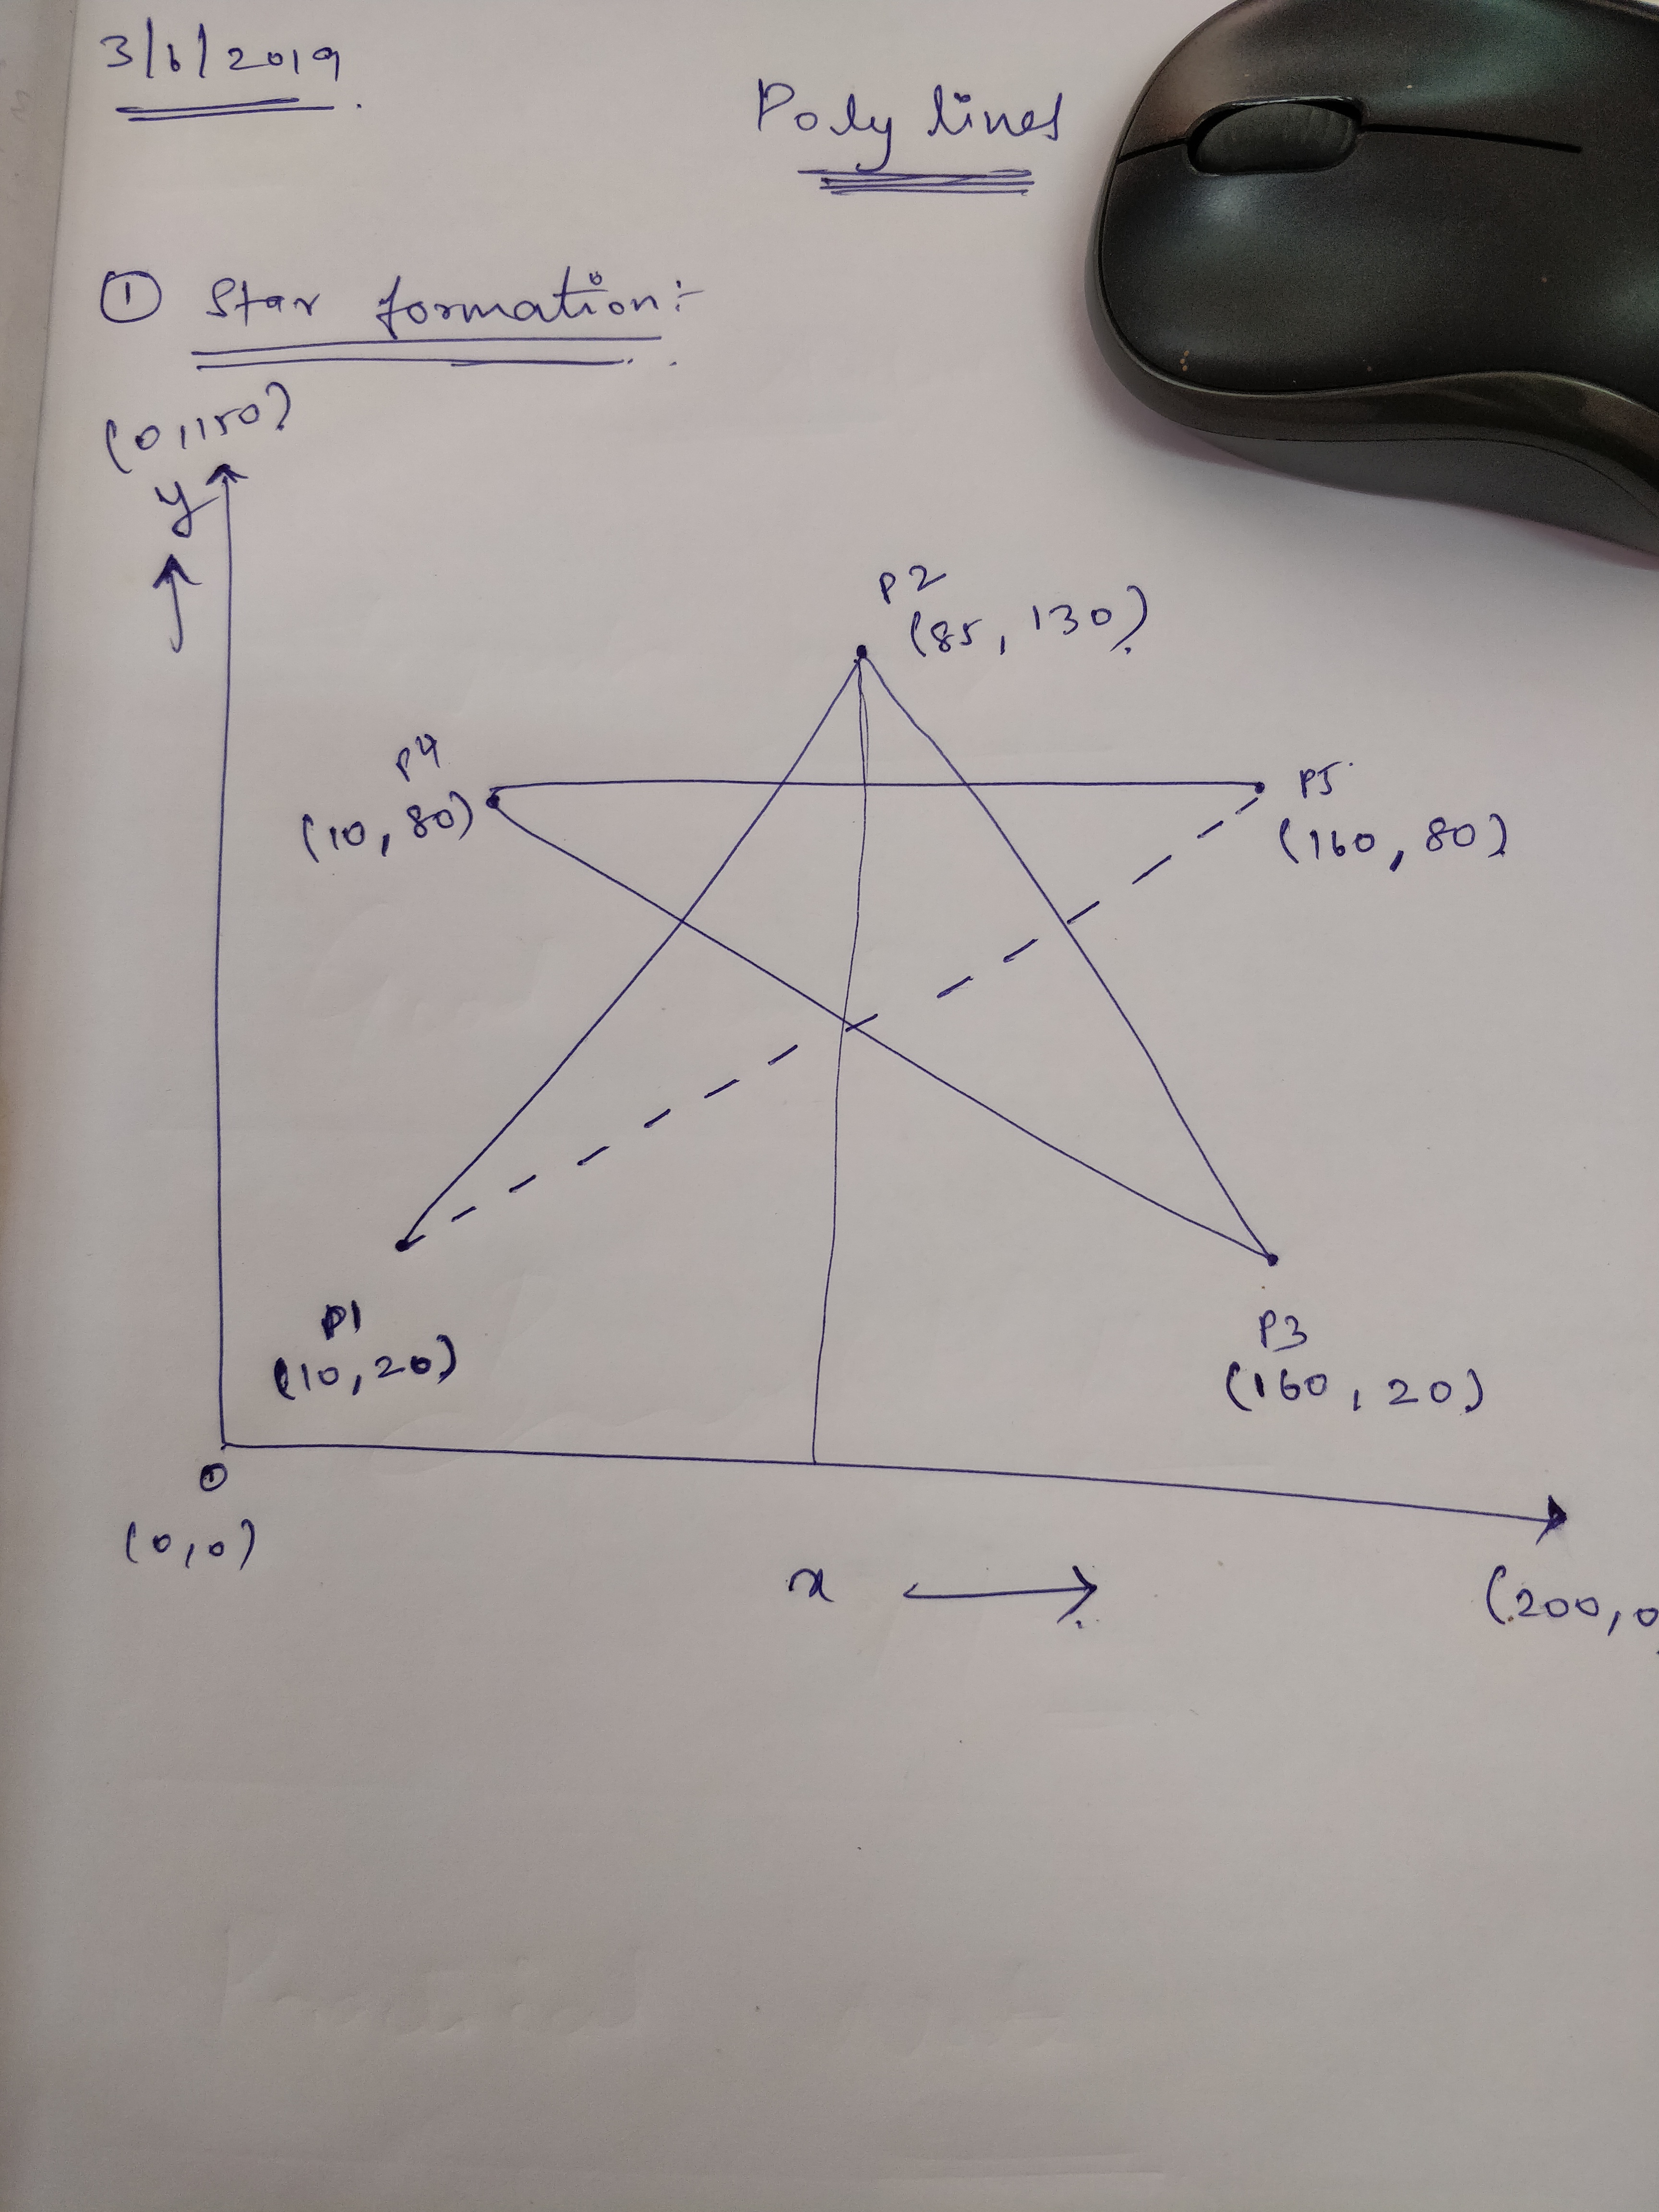 3/6/2019
Poly lines
① Star formation:-
(0,150)
y
P2
(85, 130)
P4
(10, 80)
P5
(160, 80)
P1
(10, 20)
P3
(160, 20)
0
(0,0)
x
(200,0